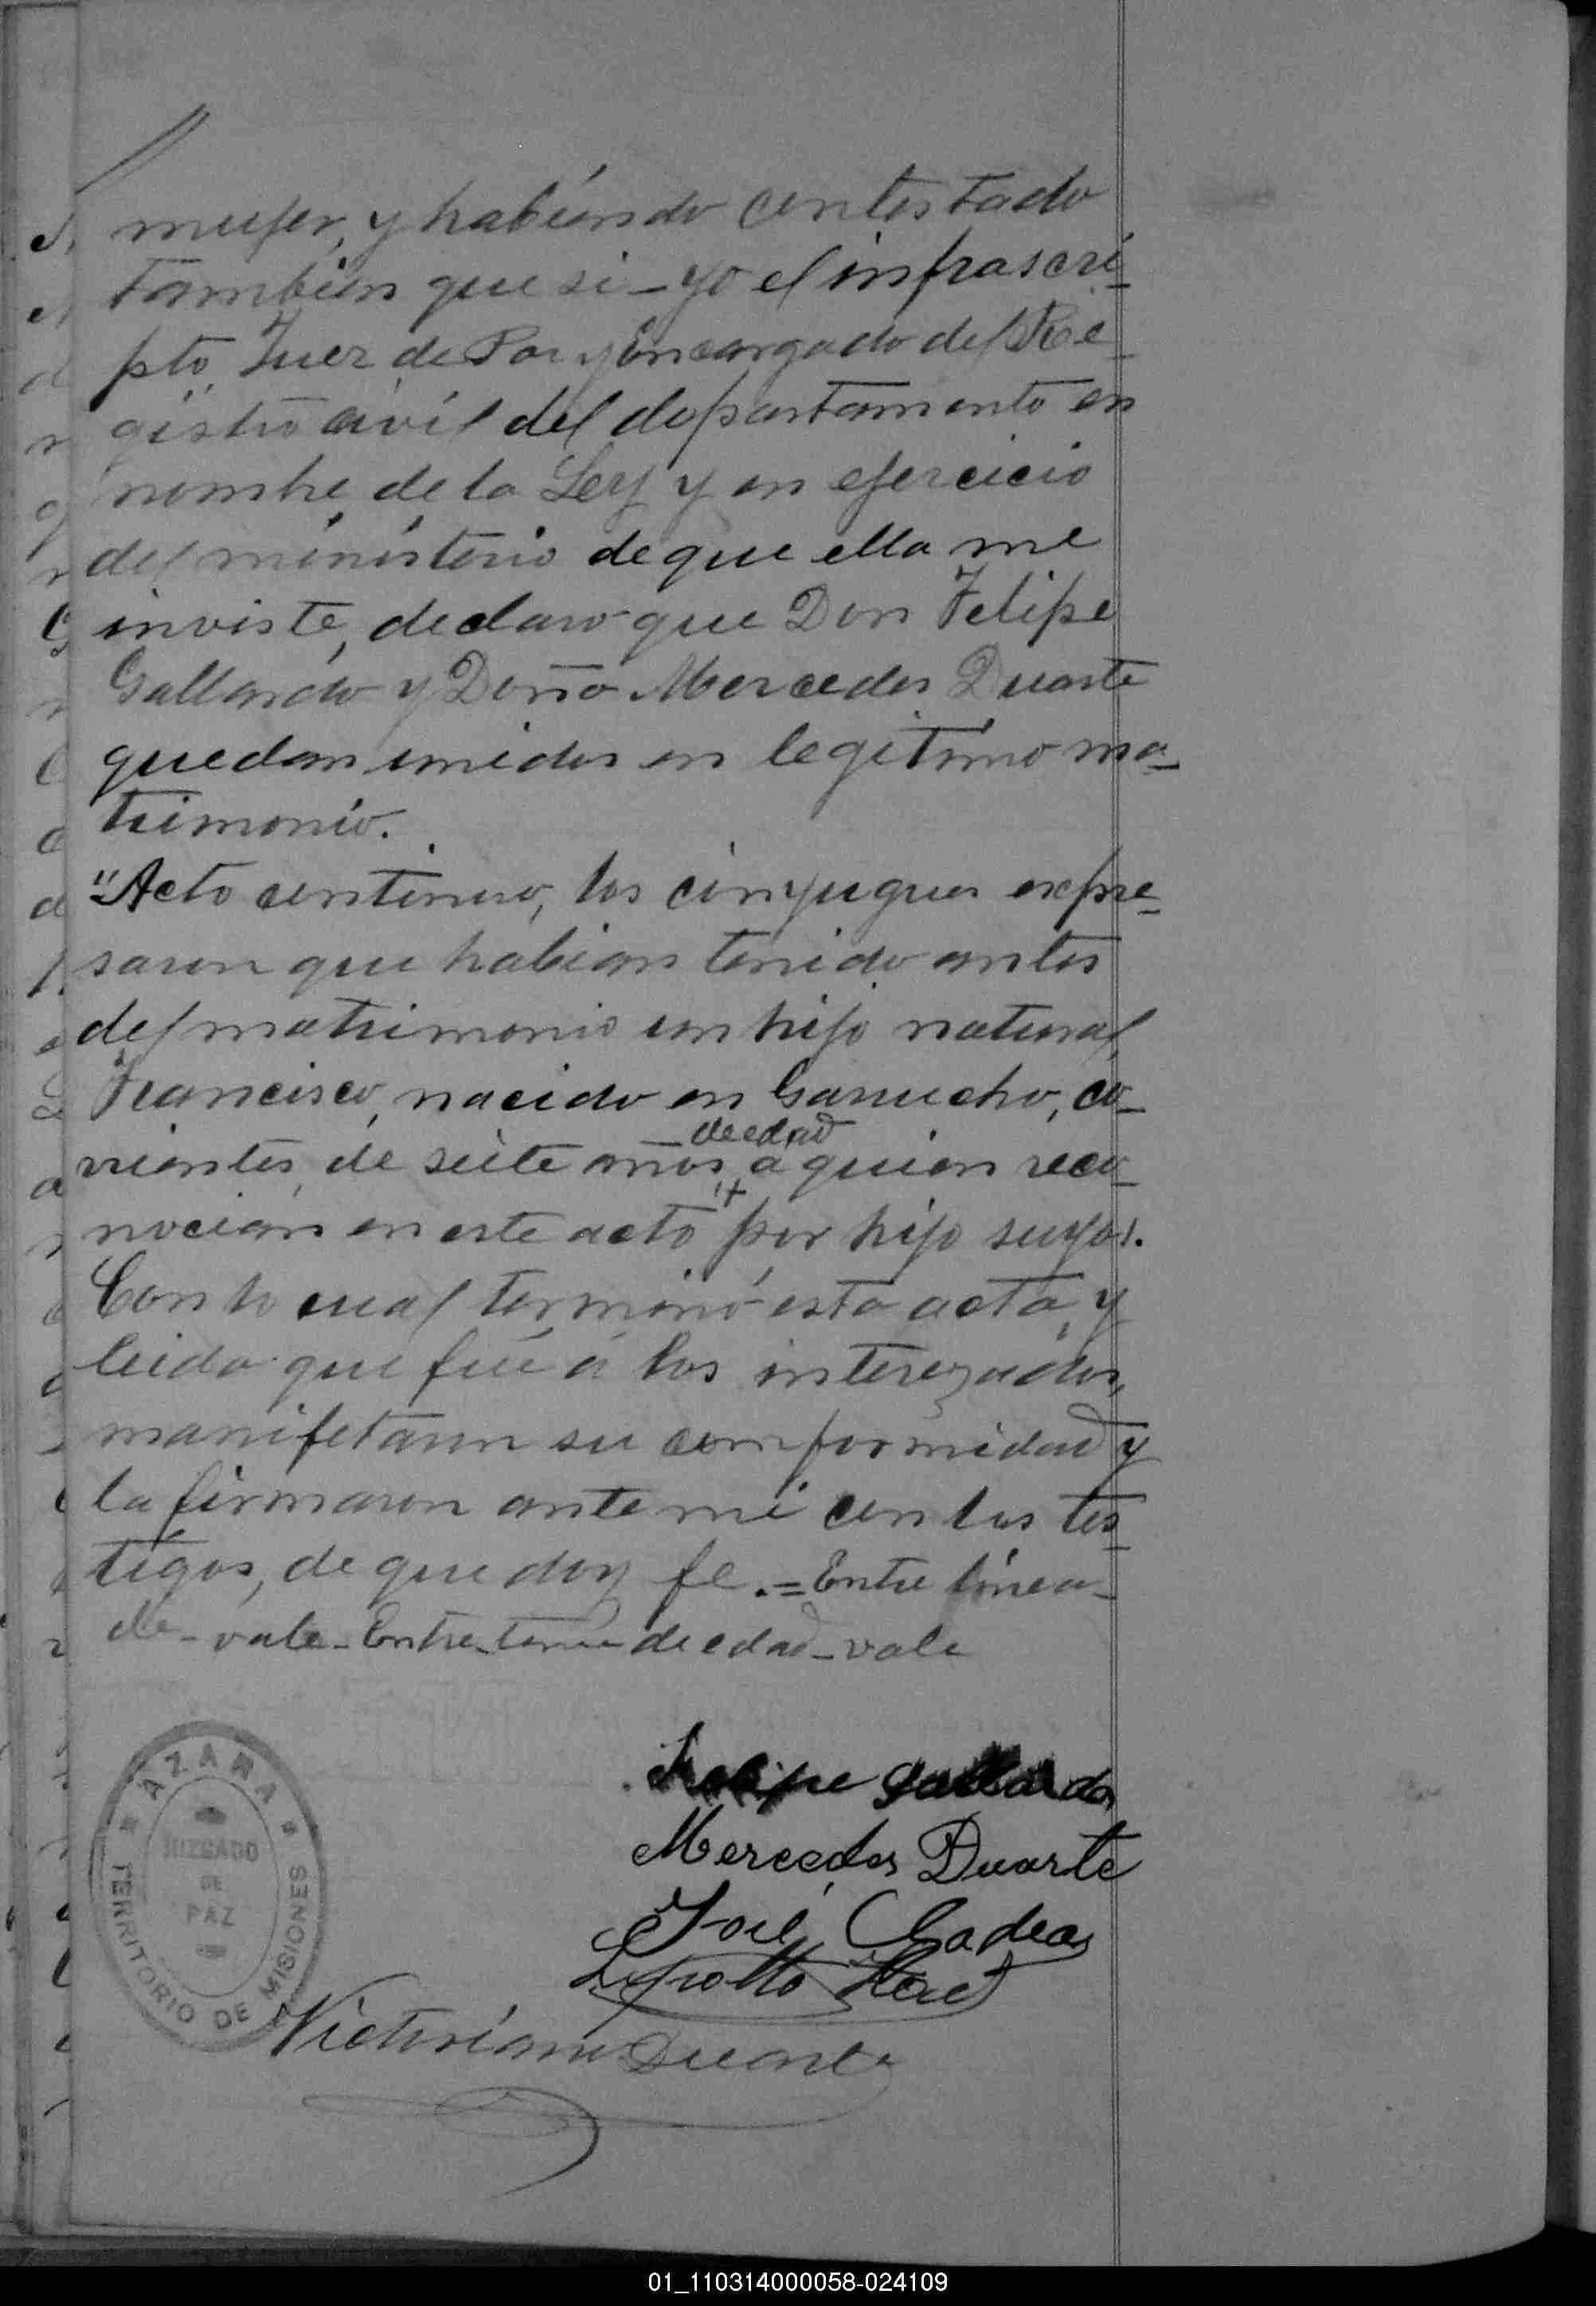 mujer, y habiendo contestado
tambien que si - yo el infrascri-
pto, Juez de Paz y encargado del Re-
gistro civil del departamento en
nombre de la Ley y en ejercicio
del ministerio de que ella me
inviste, declaro que Don Felipe
Gallardo y Doña Mercedes Duarte
quedan unidos en legitimo ma-
trimonio.
"Acto continuo, los conyugues expre-
saron que habian tenido antes
del matrimonio un hijo natural,
Francisco, nacido en Garruchos, co-
de edad
rrientes, de siete años, a quien reco-
nocian en este acto por hijo suyo".
Con lo cual terminó esta acta, y
leida que fué á los interezados,
manifetaron su comformidad y
la firmaron ante mi con los tes-
tigos, de que doy fe. = Entre linea-
de - vale - Entre de edad - vale
Felipe Gallardo
Mercedes Duarte
José
Victoriano Duarte
AZARA
JUZGADO
DE
PAZ
TERRITORIO DE MISIONES
01_110314000058-024109